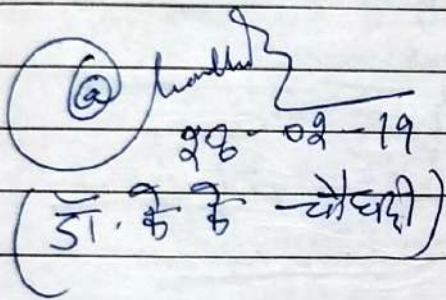 २६-०२-19
(डॉ. के के चौधरी)